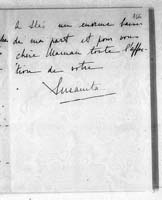 à Sté un enorme baiser
de ma part et pour vous
chère Maman toute l'affec-
tion de votre